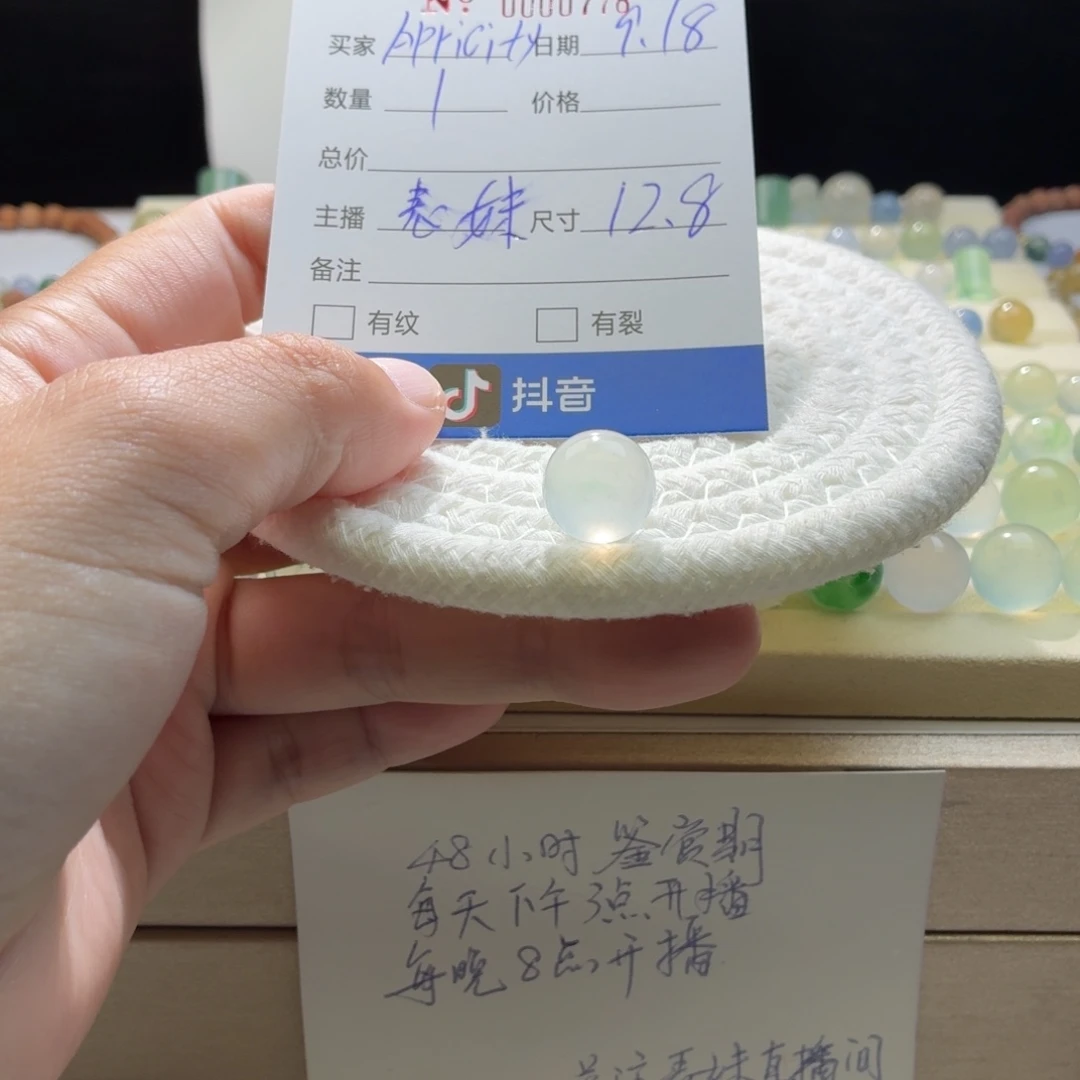 No 0000778
买家 Apricity 日期 9.18
数量 1 价格
总价
主播 表妹 尺寸 12.8
备注
有纹 有裂
抖音
48小时鉴赏期
每天下午3点开播
每晚8点开播
关注表妹直播间